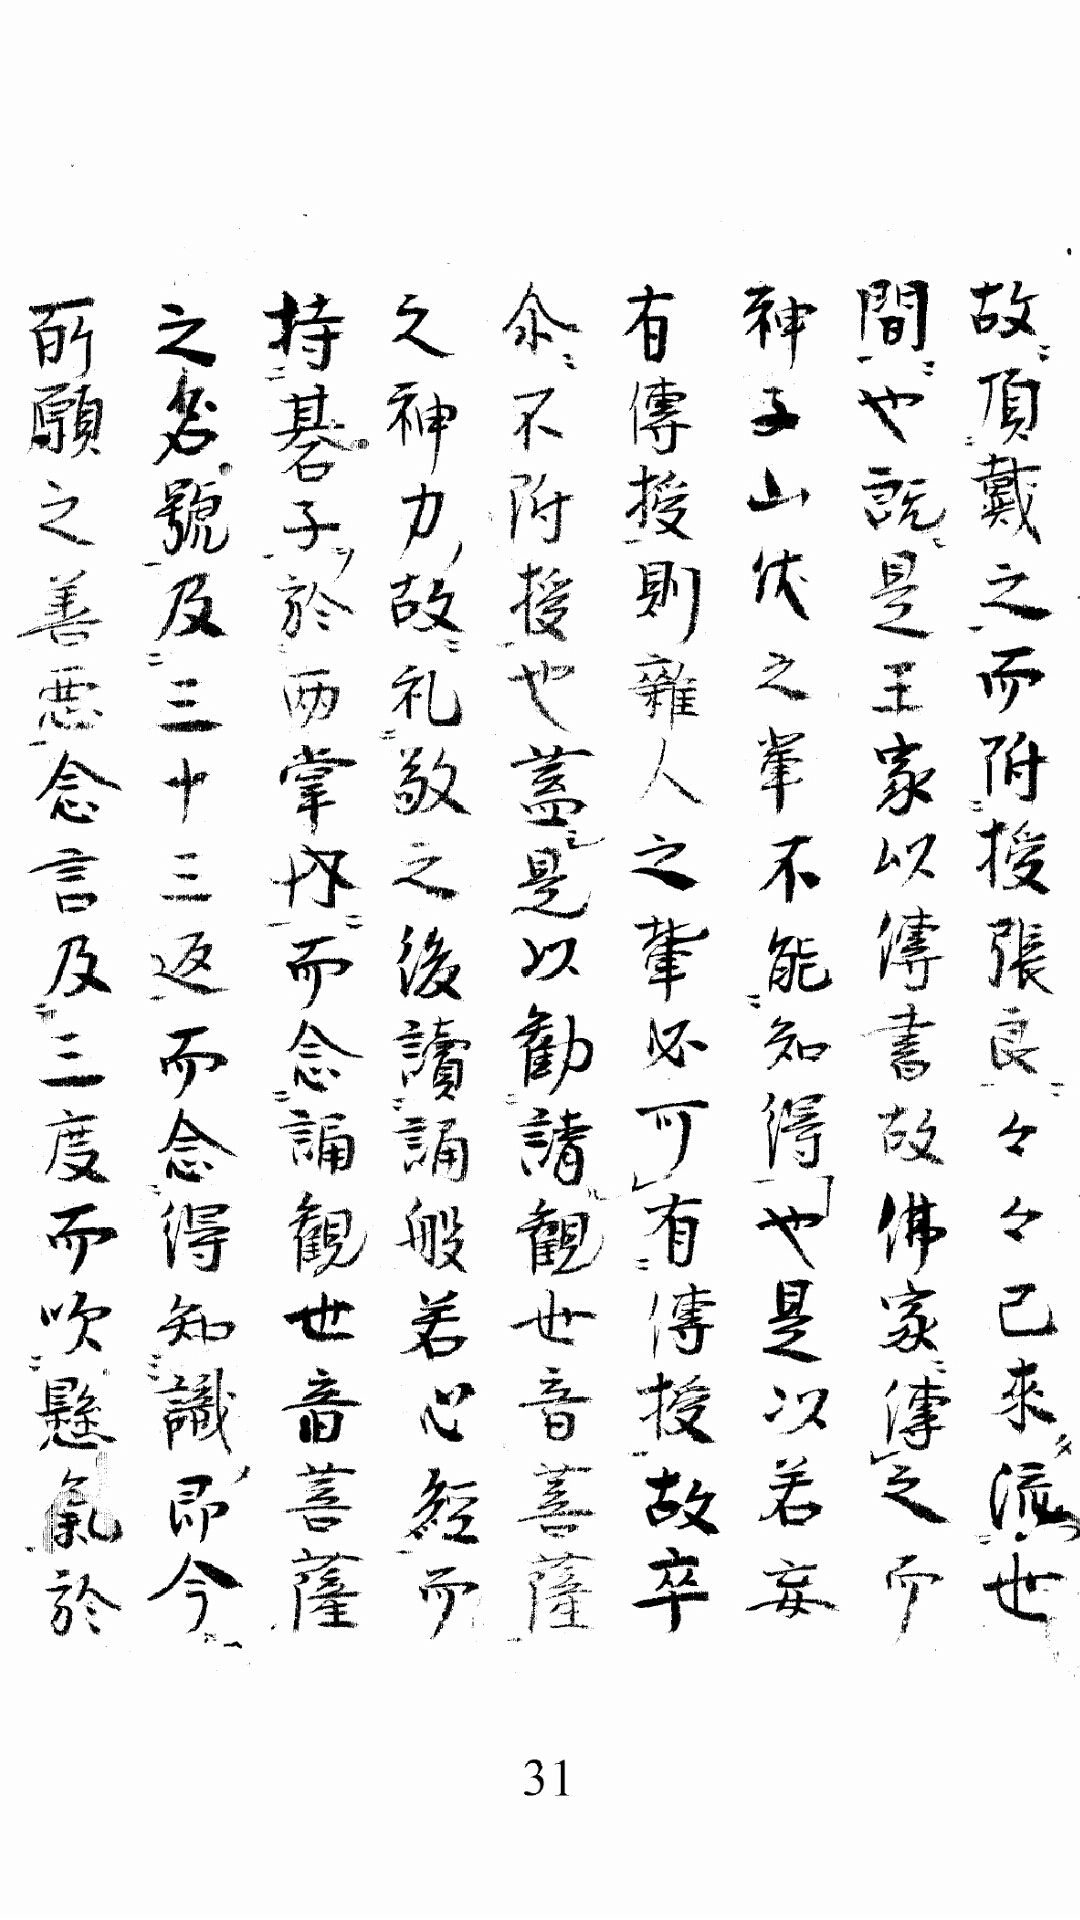 故頂戴之而附授張良々々已來流世
間也既是王家以傳書故佛家傳之而
神子山伏之輩不能知得也是以若妄
有傳授則雜人之輩必可有傳授故卒
尒不附授也蓋是以勸請觀世音菩薩
之神力故礼敬之後讀誦般若心經而
持碁子於两掌内而念誦観世音菩薩
之名號及三十三返而念得知識即今
所願之善悪念言及三度而吹懸氣於
31